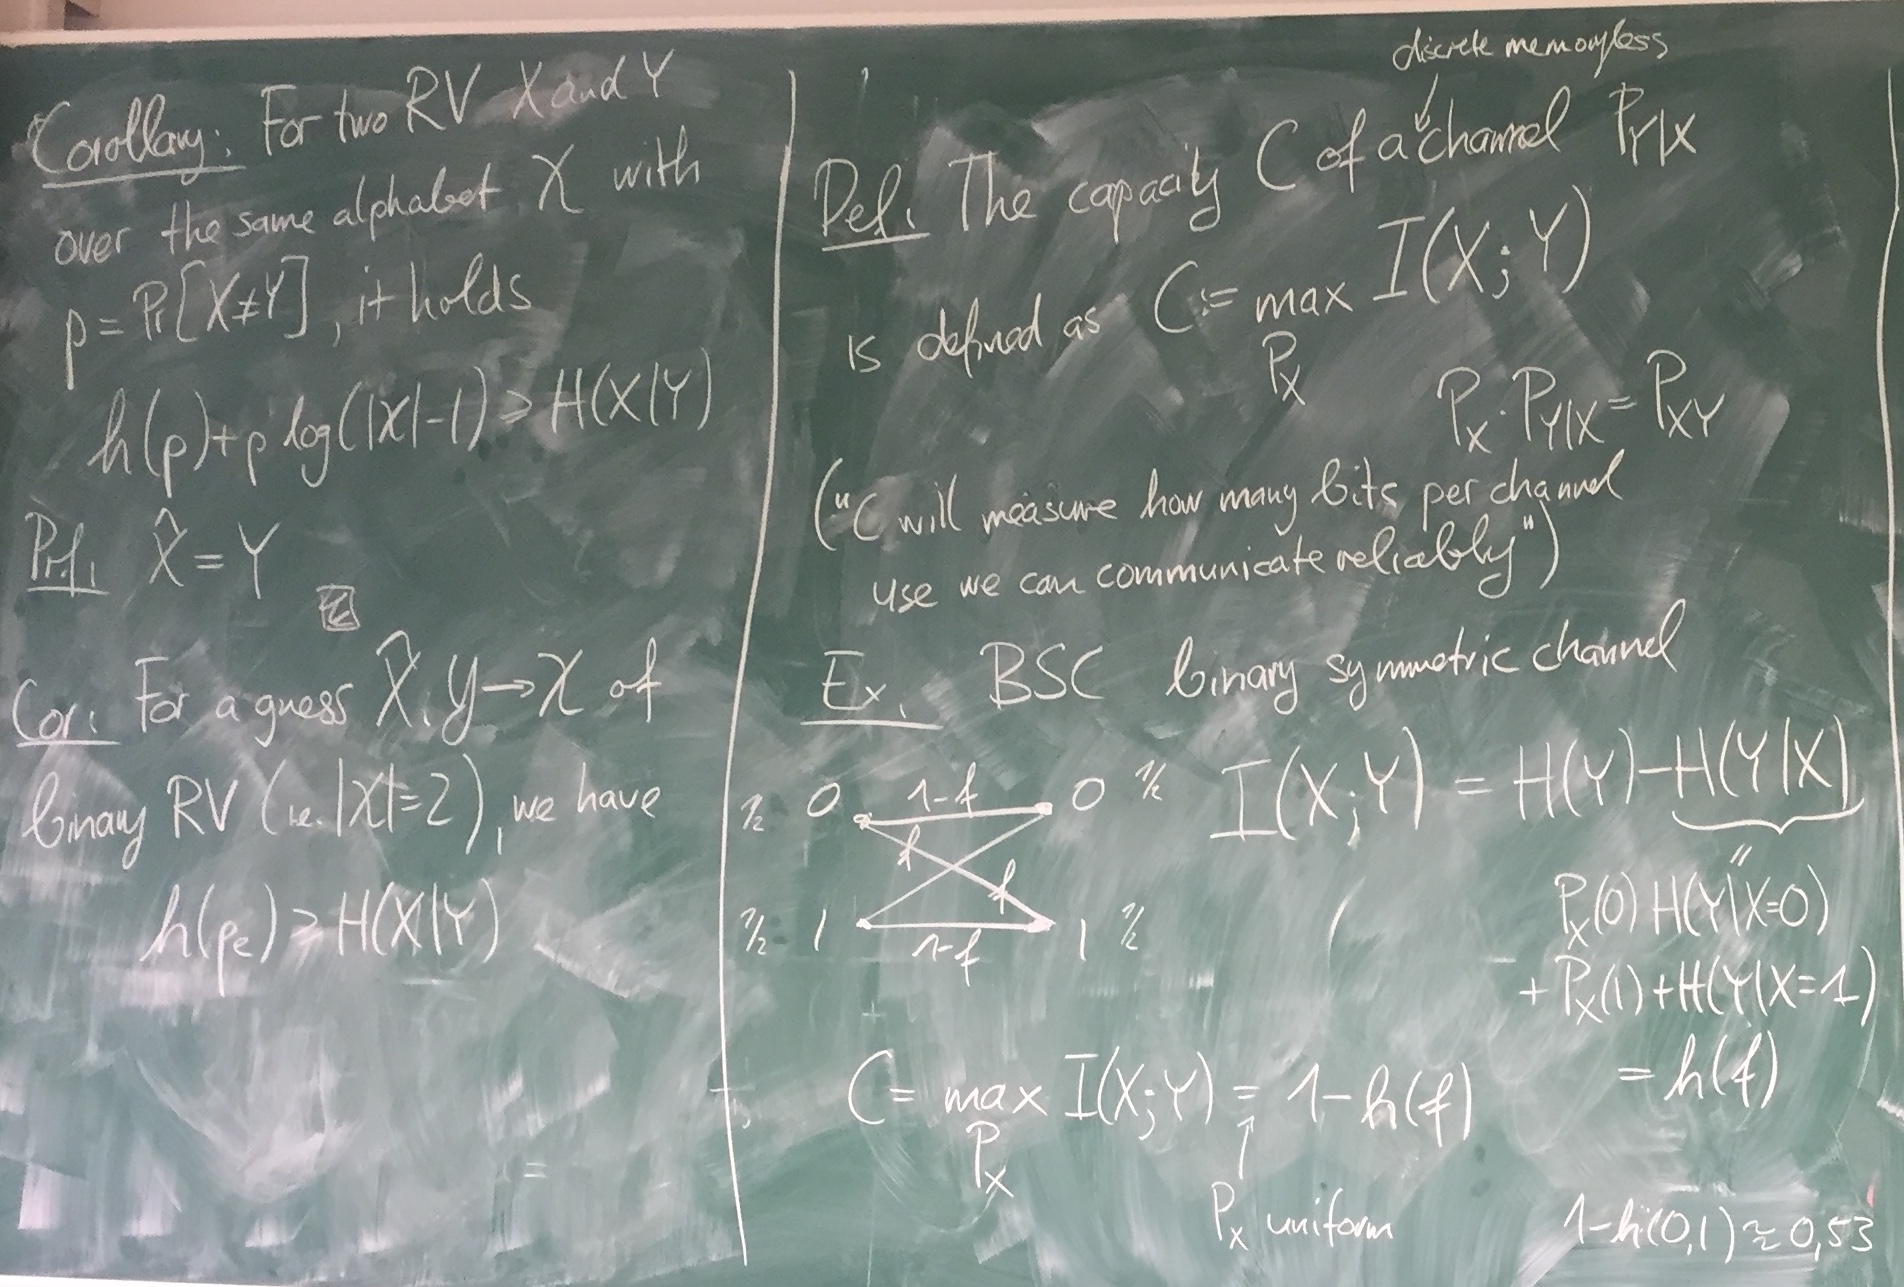 Corollary: For two RV X and Y
over the same alphabet 𝒳 with
p = Pr[X≠Y], it holds
h(p)+p log(|𝒳|-1) ≥ H(X|Y)
Prf: X̂ = Y
Cor: For a guess X̂: 𝒴→𝒳 of
binary RV (i.e. |𝒳|=2), we have
h(pₑ) ≥ H(X|Y)
discrete memoryless
Def: The capacity C of a channel P_{Y|X}
is defined as C := max I(X;Y)
P_X
P_X · P_{Y|X} = P_{XY}
("C will measure how many bits per channel
use we can communicate reliably")
Ex. BSC binary symmetric channel
½ 0 1-f 0 ½
f f
½ 1 1-f 1 ½
I(X;Y) = H(Y)-H(Y|X)
=
P_X(0) H(Y|X=0)
+ P_X(1) + H(Y|X=1)
= h(f)
C = max I(X;Y) = 1-h(f)
P_X
P_X uniform
1-h(0,1) ≈ 0,53